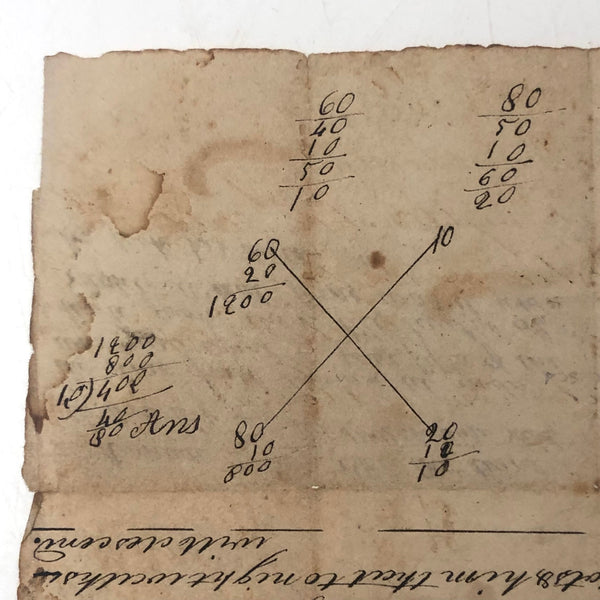 60
40
10
50
10
80
50
10
60
20
60
20
1200
10
1200
800
10)400
40
80 Ans
80
10
800
20
10
10
will descend.
him that to night walks